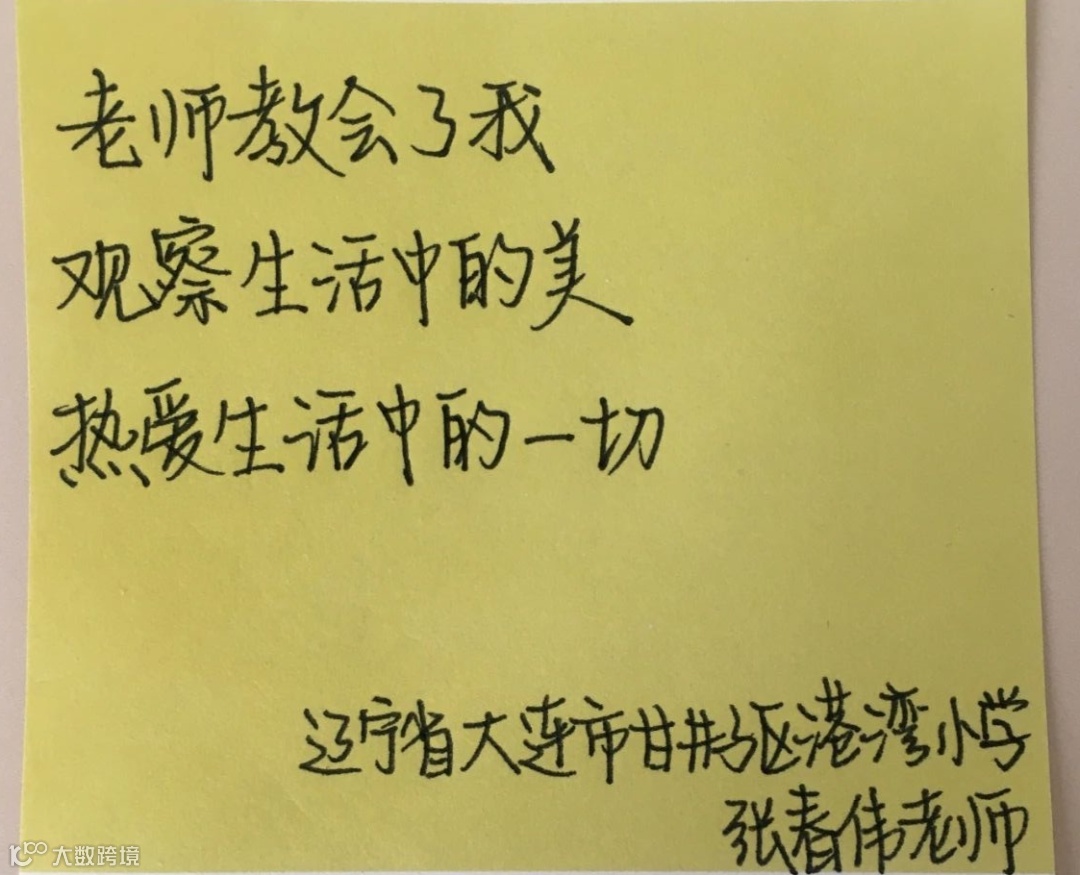 老师教会了我
观察生活中的美
热爱生活中的一切
辽宁省大连市甘井子区港湾小学
张春伟老师
大数跨境